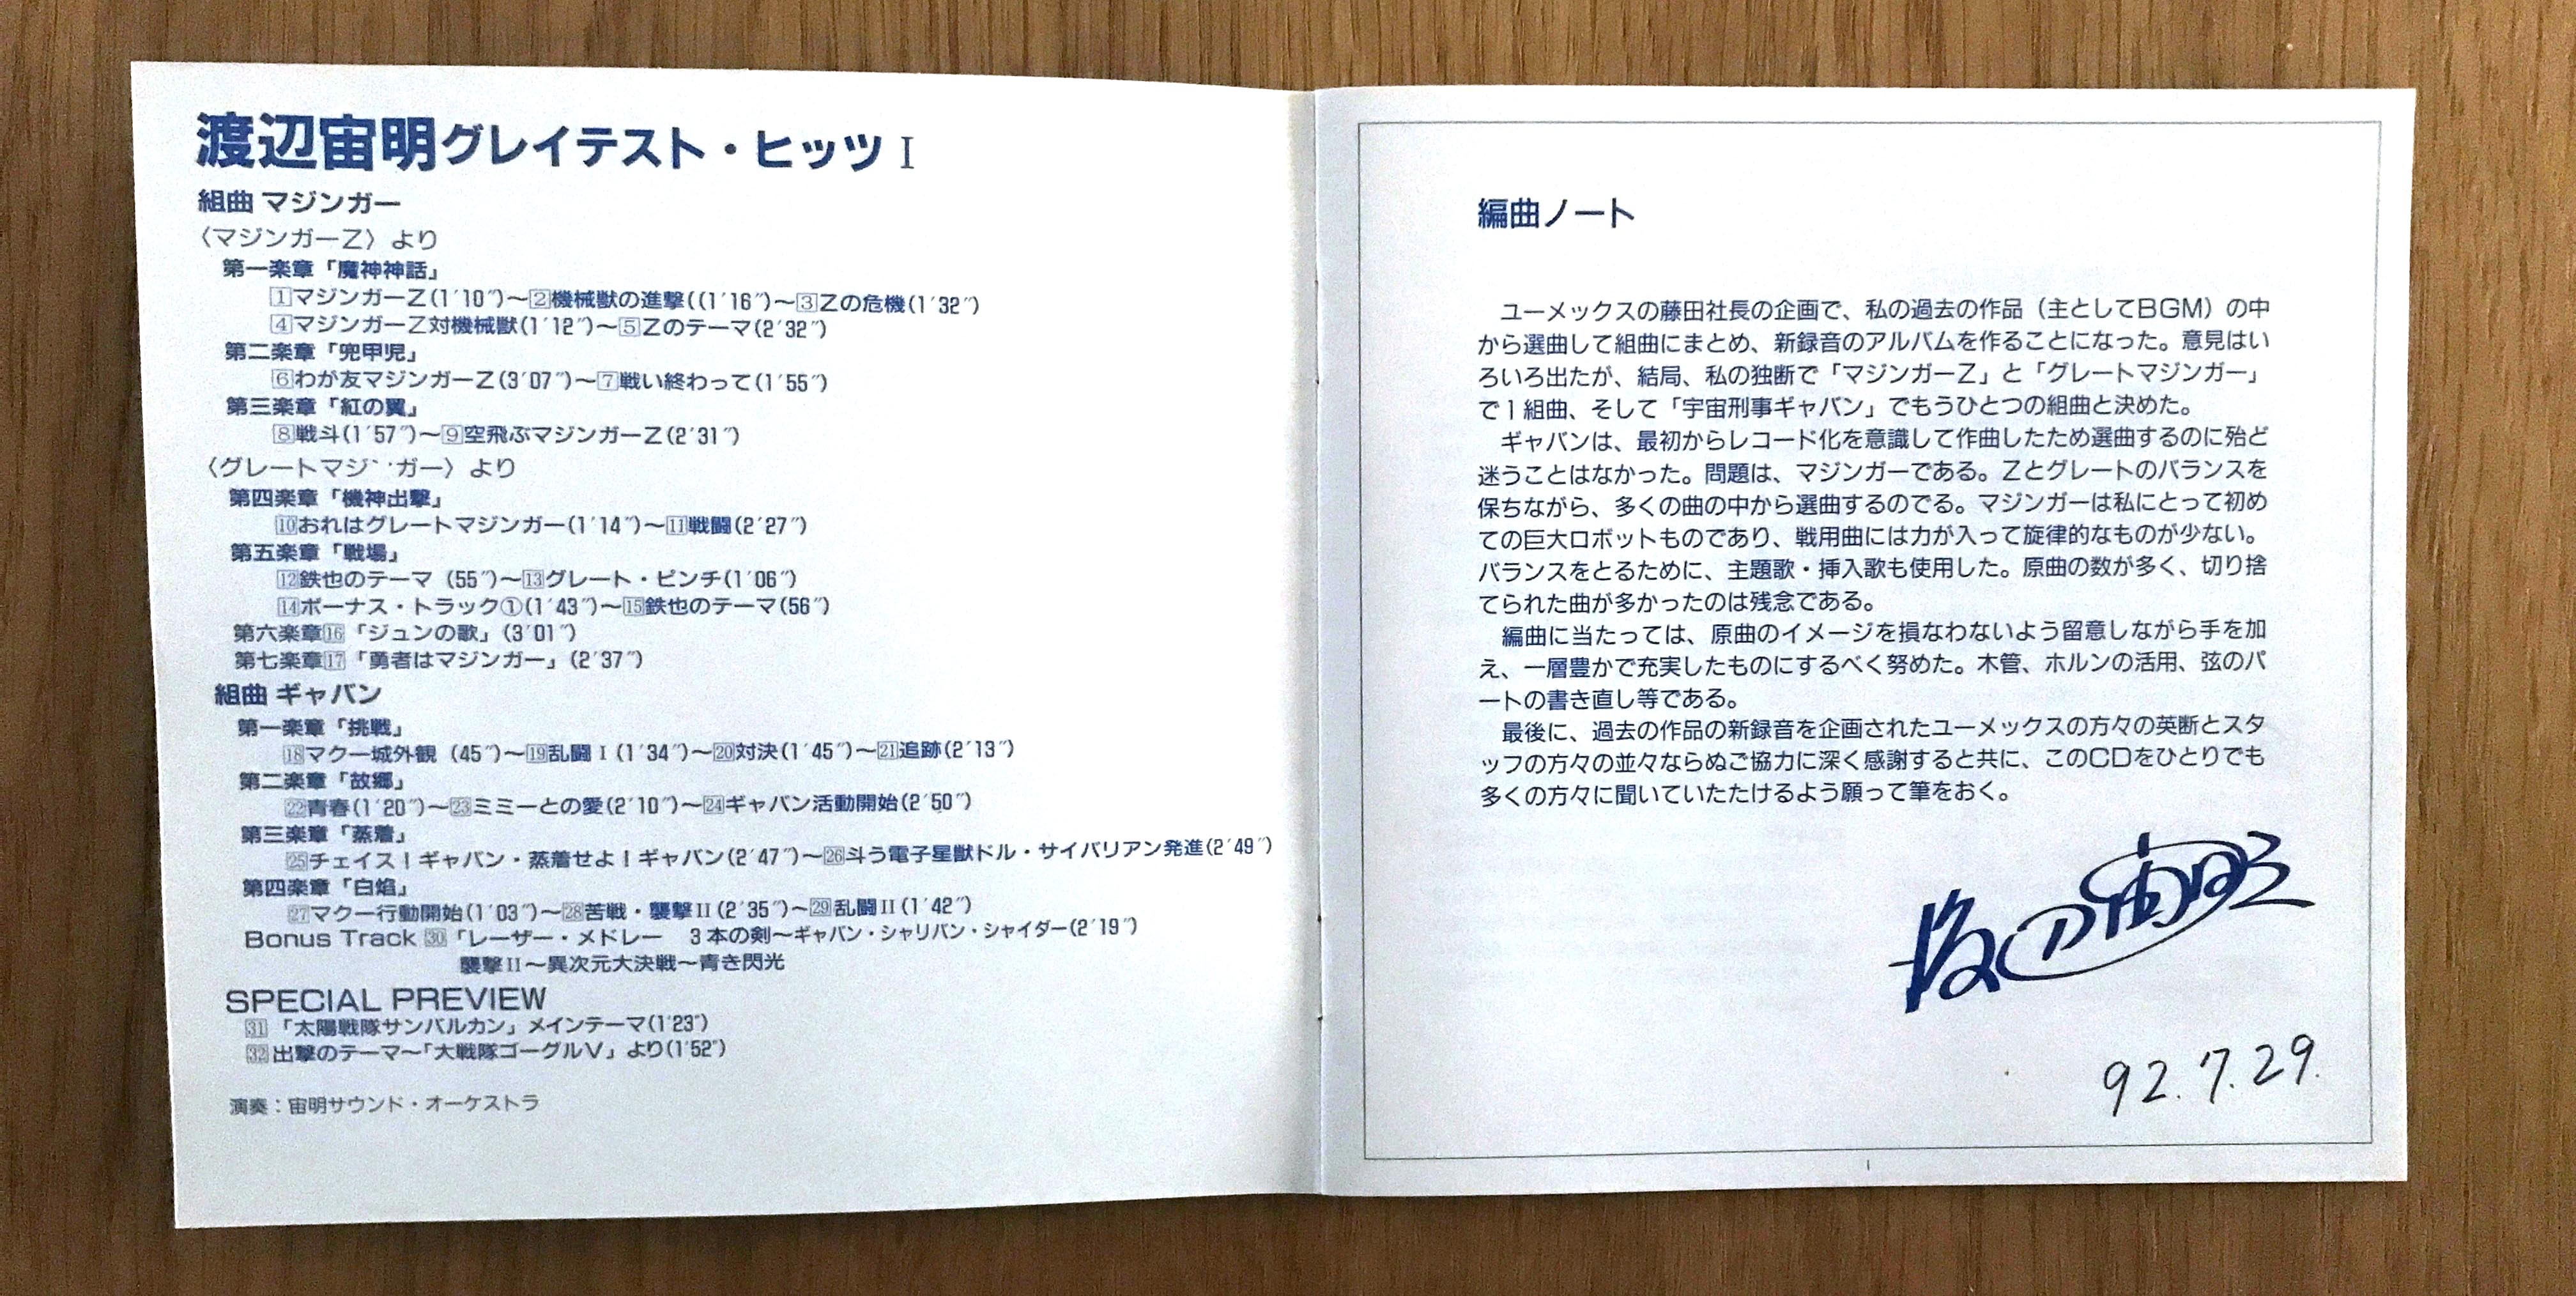 渡辺宙明グレイテスト・ヒッツ I
組曲 マジンガー
〈マジンガーZ〉より
第一楽章「魔神神話」
1マジンガーZ(1′10″)〜2機械獣の進撃((1′16″)〜3Zの危機(1′32″)
4マジンガーZ対機械獣(1′12″)〜5Zのテーマ(2′32″)
第二楽章「兜甲児」
6わが友マジンガーZ(3′07″)〜7戦い終わって(1′55″)
第三楽章「紅の翼」
8戦斗(1′57″)〜9空飛ぶマジンガーZ(2′31″)
〈グレートマジ ガー〉より
第四楽章「機神出撃」
10おれはグレートマジンガー(1′14″)〜11戦闘(2′27″)
第五楽章「戦場」
12鉄也のテーマ (55″)〜13グレート・ピンチ(1′06″)
14ボーナス・トラック①(1′43″)〜15鉄也のテーマ(56″)
第六楽章16「ジュンの歌」(3′01″)
第七楽章17「勇者はマジンガー」(2′37″)
組曲 ギャバン
第一楽章「挑戦」
18マクー城外観 (45″)〜19乱闘I(1′34″)〜20対決(1′45″)〜21追跡(2′13″)
第二楽章「故郷」
22青春(1′20″)〜23ミミーとの愛(2′10″)〜24ギャバン活動開始(2′50″)
第三楽章「蒸着」
25チェイス!ギャバン・蒸着せよ!ギャバン(2′47″)〜26斗う電子星獣ドル・サイバリアン発進(2′49″)
第四楽章「白焔」
27マクー行動開始(1′03″)〜28苦戦・襲撃II(2′35″)〜29乱闘II(1′42″)
Bonus Track 30「レーザー・メドレー 3本の剣〜ギャバン・シャリバン・シャイダー(2′19″)
襲撃II〜異次元大決戦〜青き閃光
SPECIAL PREVIEW
31「太陽戦隊サンバルカン」メインテーマ(1′23″)
32出撃のテーマ〜「大戦隊ゴーグルV」より(1′52″)
演奏:宙明サウンド・オーケストラ
編曲ノート
ユーメックスの藤田社長の企画で、私の過去の作品（主としてBGM）の中
から選曲して組曲にまとめ、新録音のアルバムを作ることになった。意見はい
ろいろ出たが、結局、私の独断で「マジンガーZ」と「グレートマジンガー」
で1組曲、そして「宇宙刑事ギャバン」でもうひとつの組曲と決めた。
ギャバンは、最初からレコード化を意識して作曲したため選曲するのに殆ど
迷うことはなかった。問題は、マジンガーである。Zとグレートのバランスを
保ちながら、多くの曲の中から選曲するのでる。マジンガーは私にとって初め
ての巨大ロボットものであり、戦用曲には力が入って旋律的なものが少ない。
バランスをとるために、主題歌・挿入歌も使用した。原曲の数が多く、切り捨
てられた曲が多かったのは残念である。
編曲に当たっては、原曲のイメージを損なわないよう留意しながら手を加
え、一層豊かで充実したものにするべく努めた。木管、ホルンの活用、弦のパ
ートの書き直し等である。
最後に、過去の作品の新録音を企画されたユーメックスの方々の英断とスタ
ッフの方々の並々ならぬご協力に深く感謝すると共に、このCDをひとりでも
多くの方々に聞いていたたけるよう願って筆をおく。
渡辺宙明
92.7.29.
1